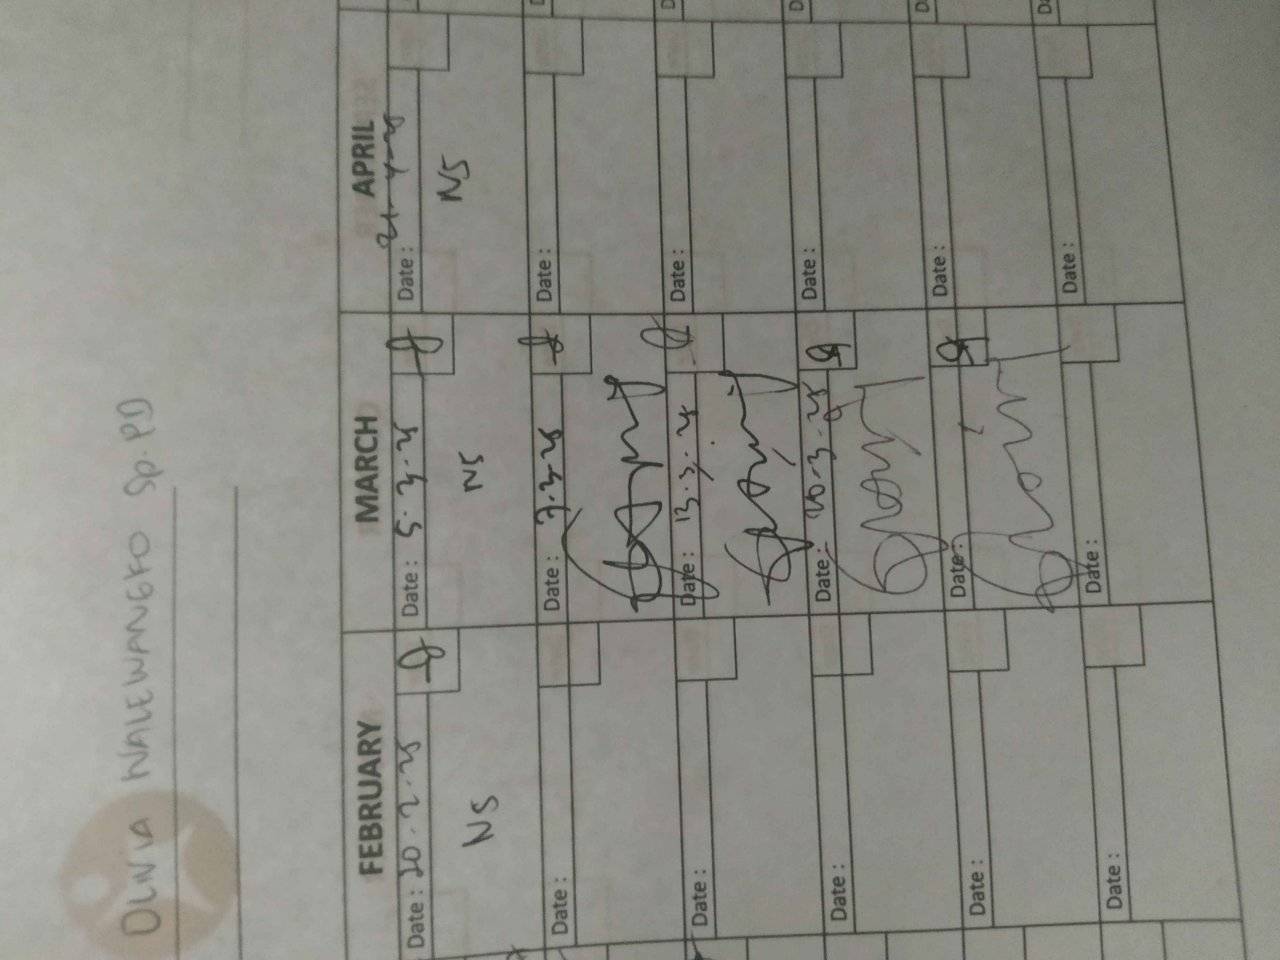 OLIVIA WALEWANGKO Sp.PD
FEBRUARY
Date : 20 . 2 . 25
NS
Date :
Date :
Date :
Date :
Date :
MARCH
Date : 5 . 3 . 25
NS
Date : 7 . 3 . 25
Date : 13 . 3 . 25
Date :
Date :
Date :
APRIL
Date :
NS
Date :
Date :
Date :
Date :
Date :